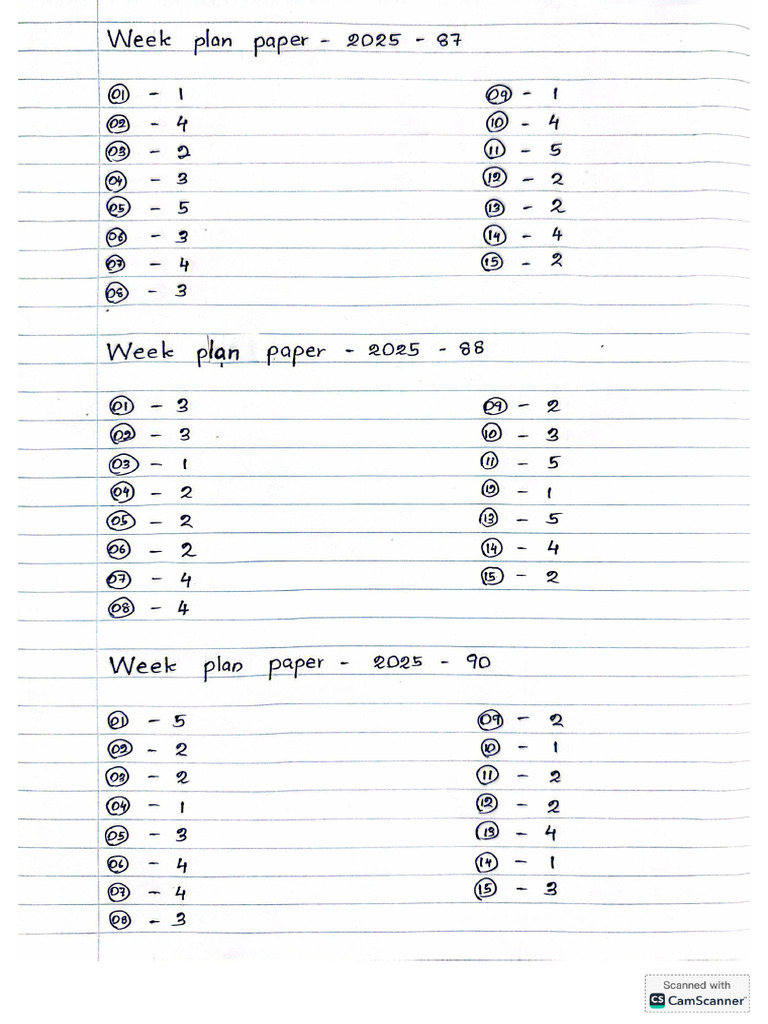 Week plan paper - 2025 - 87
01 - 1
02 - 4
03 - 2
04 - 3
05 - 5
06 - 3
07 - 4
08 - 3
09 - 1
10 - 4
11 - 5
12 - 2
13 - 2
14 - 4
15 - 2
Week plan paper - 2025 - 88
01 - 3
02 - 3
03 - 1
04 - 2
05 - 2
06 - 2
07 - 4
08 - 4
09 - 2
10 - 3
11 - 5
12 - 1
13 - 5
14 - 4
15 - 2
Week plan paper - 2025 - 90
01 - 5
02 - 2
03 - 2
04 - 1
05 - 3
06 - 4
07 - 4
08 - 3
09 - 2
10 - 1
11 - 2
12 - 2
13 - 4
14 - 1
15 - 3
Scanned with
CS CamScanner